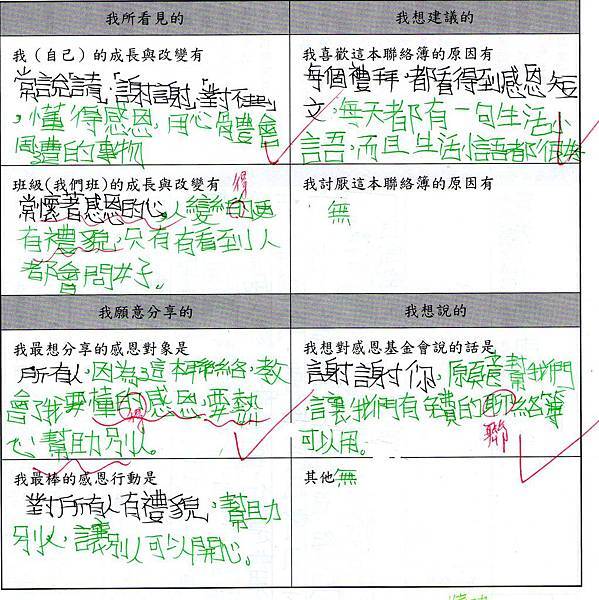 我所看見的
我（自己）的成長與改變有
常說「請」「謝謝」「對不起」
，懂得感恩，用心體會
周遭的事物
班級(我們班)的成長與改變有
得
常懷著感恩的心。人變的更
有禮貌，只有有看到人
都會問好。
我想建議的
我喜歡這本聯絡簿的原因有
每個禮拜，都看得到感恩短
文，每天都有一句生活小
語，而且生活小語都很好
我討厭這本聯絡簿的原因有
無
我願意分享的
我最想分享的感恩對象是
所有人，因為這本聯絡，教
會了我要懂的感恩，要熱
得
心幫助別人。
我最棒的感恩行動是
對所有人有禮貌，幫助
別人，讓別人可以開心。
我想說的
我想對感恩基金會說的話是
謝謝你，願意幫我們
，讓我們有免費的聯絡簿
聯
可以用。
其他無